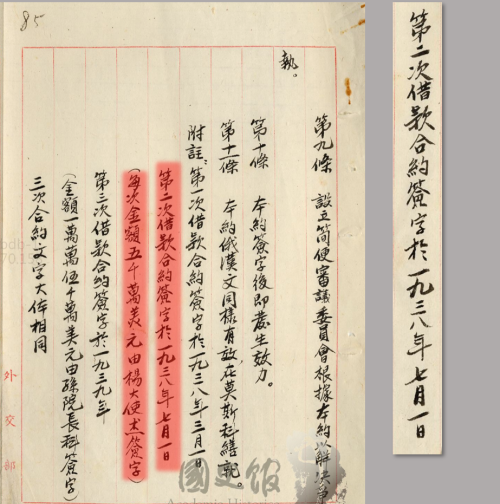 第二次借款合約簽字於一九三八年七月一日
85
第九條 設立簡便審議委員會根據本約以解決爭
執。
第十條 本約簽字後即發生效力。
第十一條 本約俄漢文同樣有效,在莫斯科繕就。
附註:第一次借款合約簽字於一九三八年三月一日
第二次借款合約簽字於一九三八年七月一日
(每次金額五千萬美元由楊大使杰簽字)
第三次借款合約簽字於一九三九年
(金額一萬萬伍千萬美元由孫院長科簽字)
三次合約文字大体相同
外交部
國史館